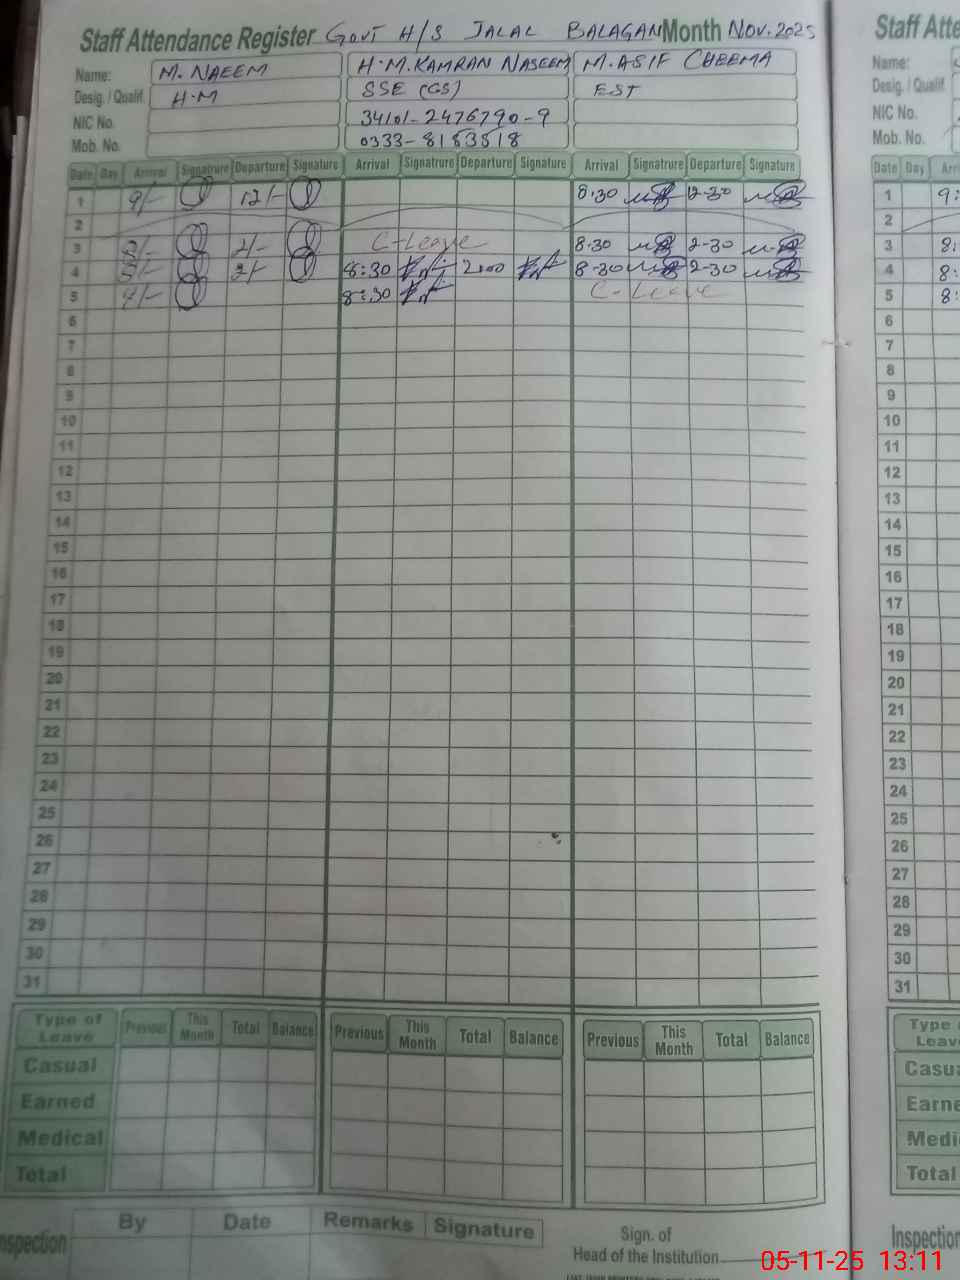 Staff Attendance Register GOVT H/S JALAL BALAGAN Month NOV. 2025
Name: M. NAEEM H.M.KAMRAN NASEEM M.ASIF CHEEMA
Desig. / Qualif. H.M SSE (GS) EST
NIC No. 34101-2476790-9
Mob. No. 0333-8153518
Date Day Arrival Signatrure Departure Signature Arrival Signatrure Departure Signature Arrival Signatrure Departure Signature
1 9/- 12/- 8.30 12-30
2
3 C-Leave 8.30 2-30
4 2/- 8:30 2:00 8-30 2-30
5 8:30 C-Leave
6
7
8
9
10
11
12
13
14
15
16
17
18
19
20
21
22
23
24
25
26
27
28
29
30
31
Type of Leave Previous This Month Total Balance Previous This Month Total Balance Previous This Month Total Balance
Casual
Earned
Medical
Total
By Date Remarks Signature
nspection
Sign. of
Head of the Institution
Staff Atte
Name:
Desig. / Qualif.
NIC No.
Mob. No.
Date Day Arri
1 9:
2
3 8:
4 8:
5 8:
6
7
8
9
10
11
12
13
14
15
16
17
18
19
20
21
22
23
24
25
26
27
28
29
30
31
Type o
Leav
Casua
Earne
Medi
Total
Inspection
05-11-25 13:11